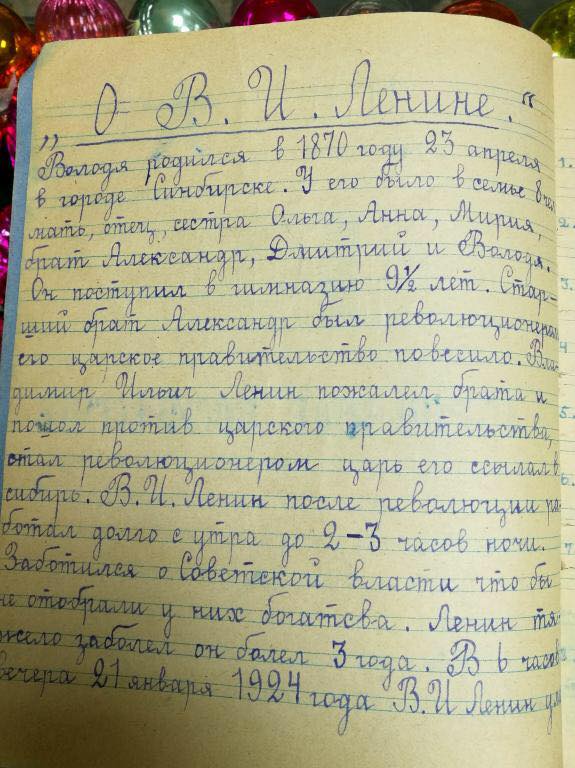 „О В. И. Ленине.“
Володя родился в 1870 году 23 апреля
в городе Синбирске. У его было в семье 8 чел
мать, отец, сестра Ольга, Анна, Мирия,
брат Александр, Дмитрий и Володя.
Он поступил в гимназию 9½ лет. Стар-
ший брат Александр был революционером
его царское правительство повесило. Вла-
димир Ильич Ленин пожалел брата и
пошол против царского правительства,
стал революционером царь его ссылал в
сибирь. В. И. Ленин после революции ра-
ботал долго с утра до 2-3 часов ночи.
Заботился о Советской власти что бы
не отобрали у них богатсва. Ленин тя-
жело заболел он болел 3 года. В 6 часов
вечера 21 января 1924 года В. И Ленин
1.
2.
3.
4
5.
6.
7.